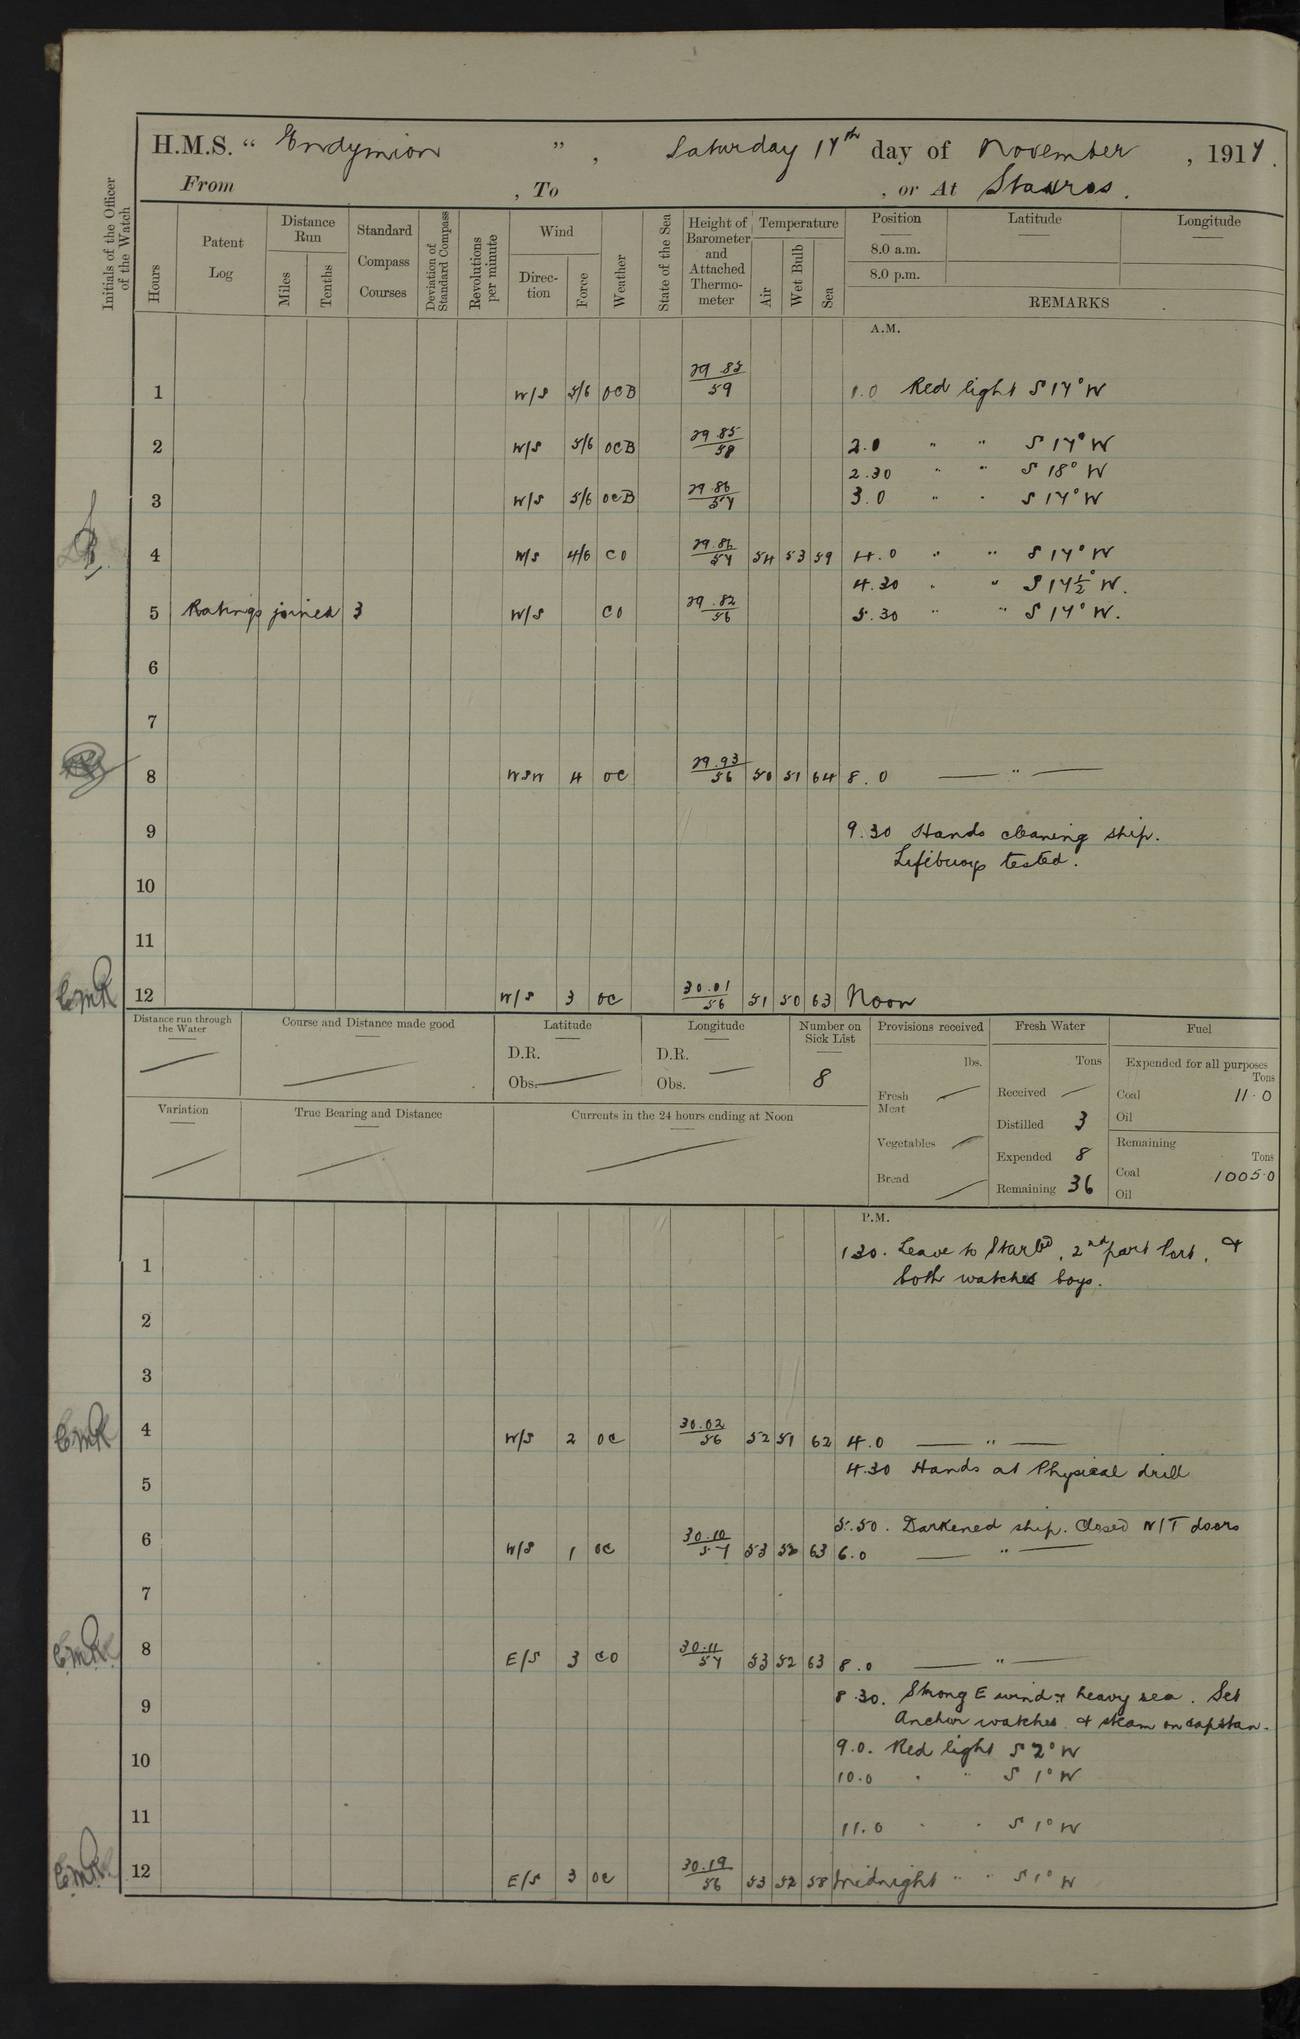 H.M.S. “ Endymion ” , Saturday 17th day of November , 1917.
From , To , or At Stavros.
Initials of the Officer of the Watch
Hours
Patent Log
Distance Run
Miles
Tenths
Standard Compass Courses
Deviation of Standard Compass
Revolutions per minute
Wind
Direction
Force
Weather
State of the Sea
Height of Barometer and Attached Thermometer
Temperature
Air
Wet Bulb
Sea
Position
8.0 a.m.
8.0 p.m.
Latitude
Longitude
REMARKS
A.M.
1 W/S 5/6 OCB 29.85 59 1.0 Red light S 17° W
2 W/S 5/6 OCB 29.85 58 2.0 " " S 17° W
2.30 " " S 18° W
3 W/S 5/6 OCB 29.86 57 3.0 " " S 17° W
4 W/S 4/6 CO 29.86 57 54 53 59 4.0 " " S 17° W
4.30 " " S 17½° W.
5 Ratings joined 3 W/S CO 29.82 56 5.30 " " S 17° W.
6
7
8 WSW 4 OC 29.93 56 50 51 64 8.0 — " —
9 9.30 Hands cleaning ship.
Lifebuoys tested.
10
11
CMR 12 W/S 3 OC 30.01 56 51 50 63 Noon
Distance run through the Water
Course and Distance made good
Latitude
D.R.
Obs.
Longitude
D.R.
Obs.
Number on Sick List
8
Provisions received
lbs.
Fresh Meat
Vegetables
Bread
Fresh Water
Tons
Received
Distilled 3
Expended 8
Remaining 36
Fuel
Expended for all purposes
Tons
Coal 11.0
Oil
Remaining
Tons
Coal 1005.0
Oil
Variation
True Bearing and Distance
Currents in the 24 hours ending at Noon
P.M.
1 1.30. Leave to Starbd, 2nd part Port, &
both watches boys.
2
3
CMR 4 W/S 2 OC 30.02 56 52 51 62 4.0 — " —
4.30 Hands at Physical drill
5
5.50. Darkened ship. Closed W/T doors
6 W/S 1 OC 30.10 57 53 52 63 6.0 — " —
7
CMR 8 E/S 3 CO 30.11 57 53 52 63 8.0 — " —
9 8.30. Strong E wind & heavy sea. Set
Anchor watches & steam on capstan.
9.0. Red light S 2° W
10 10.0 " " S 1° W
11 11.0 " " S 1° W
CMR 12 E/S 3 OC 30.19 56 53 52 58 Midnight " " S 1° W